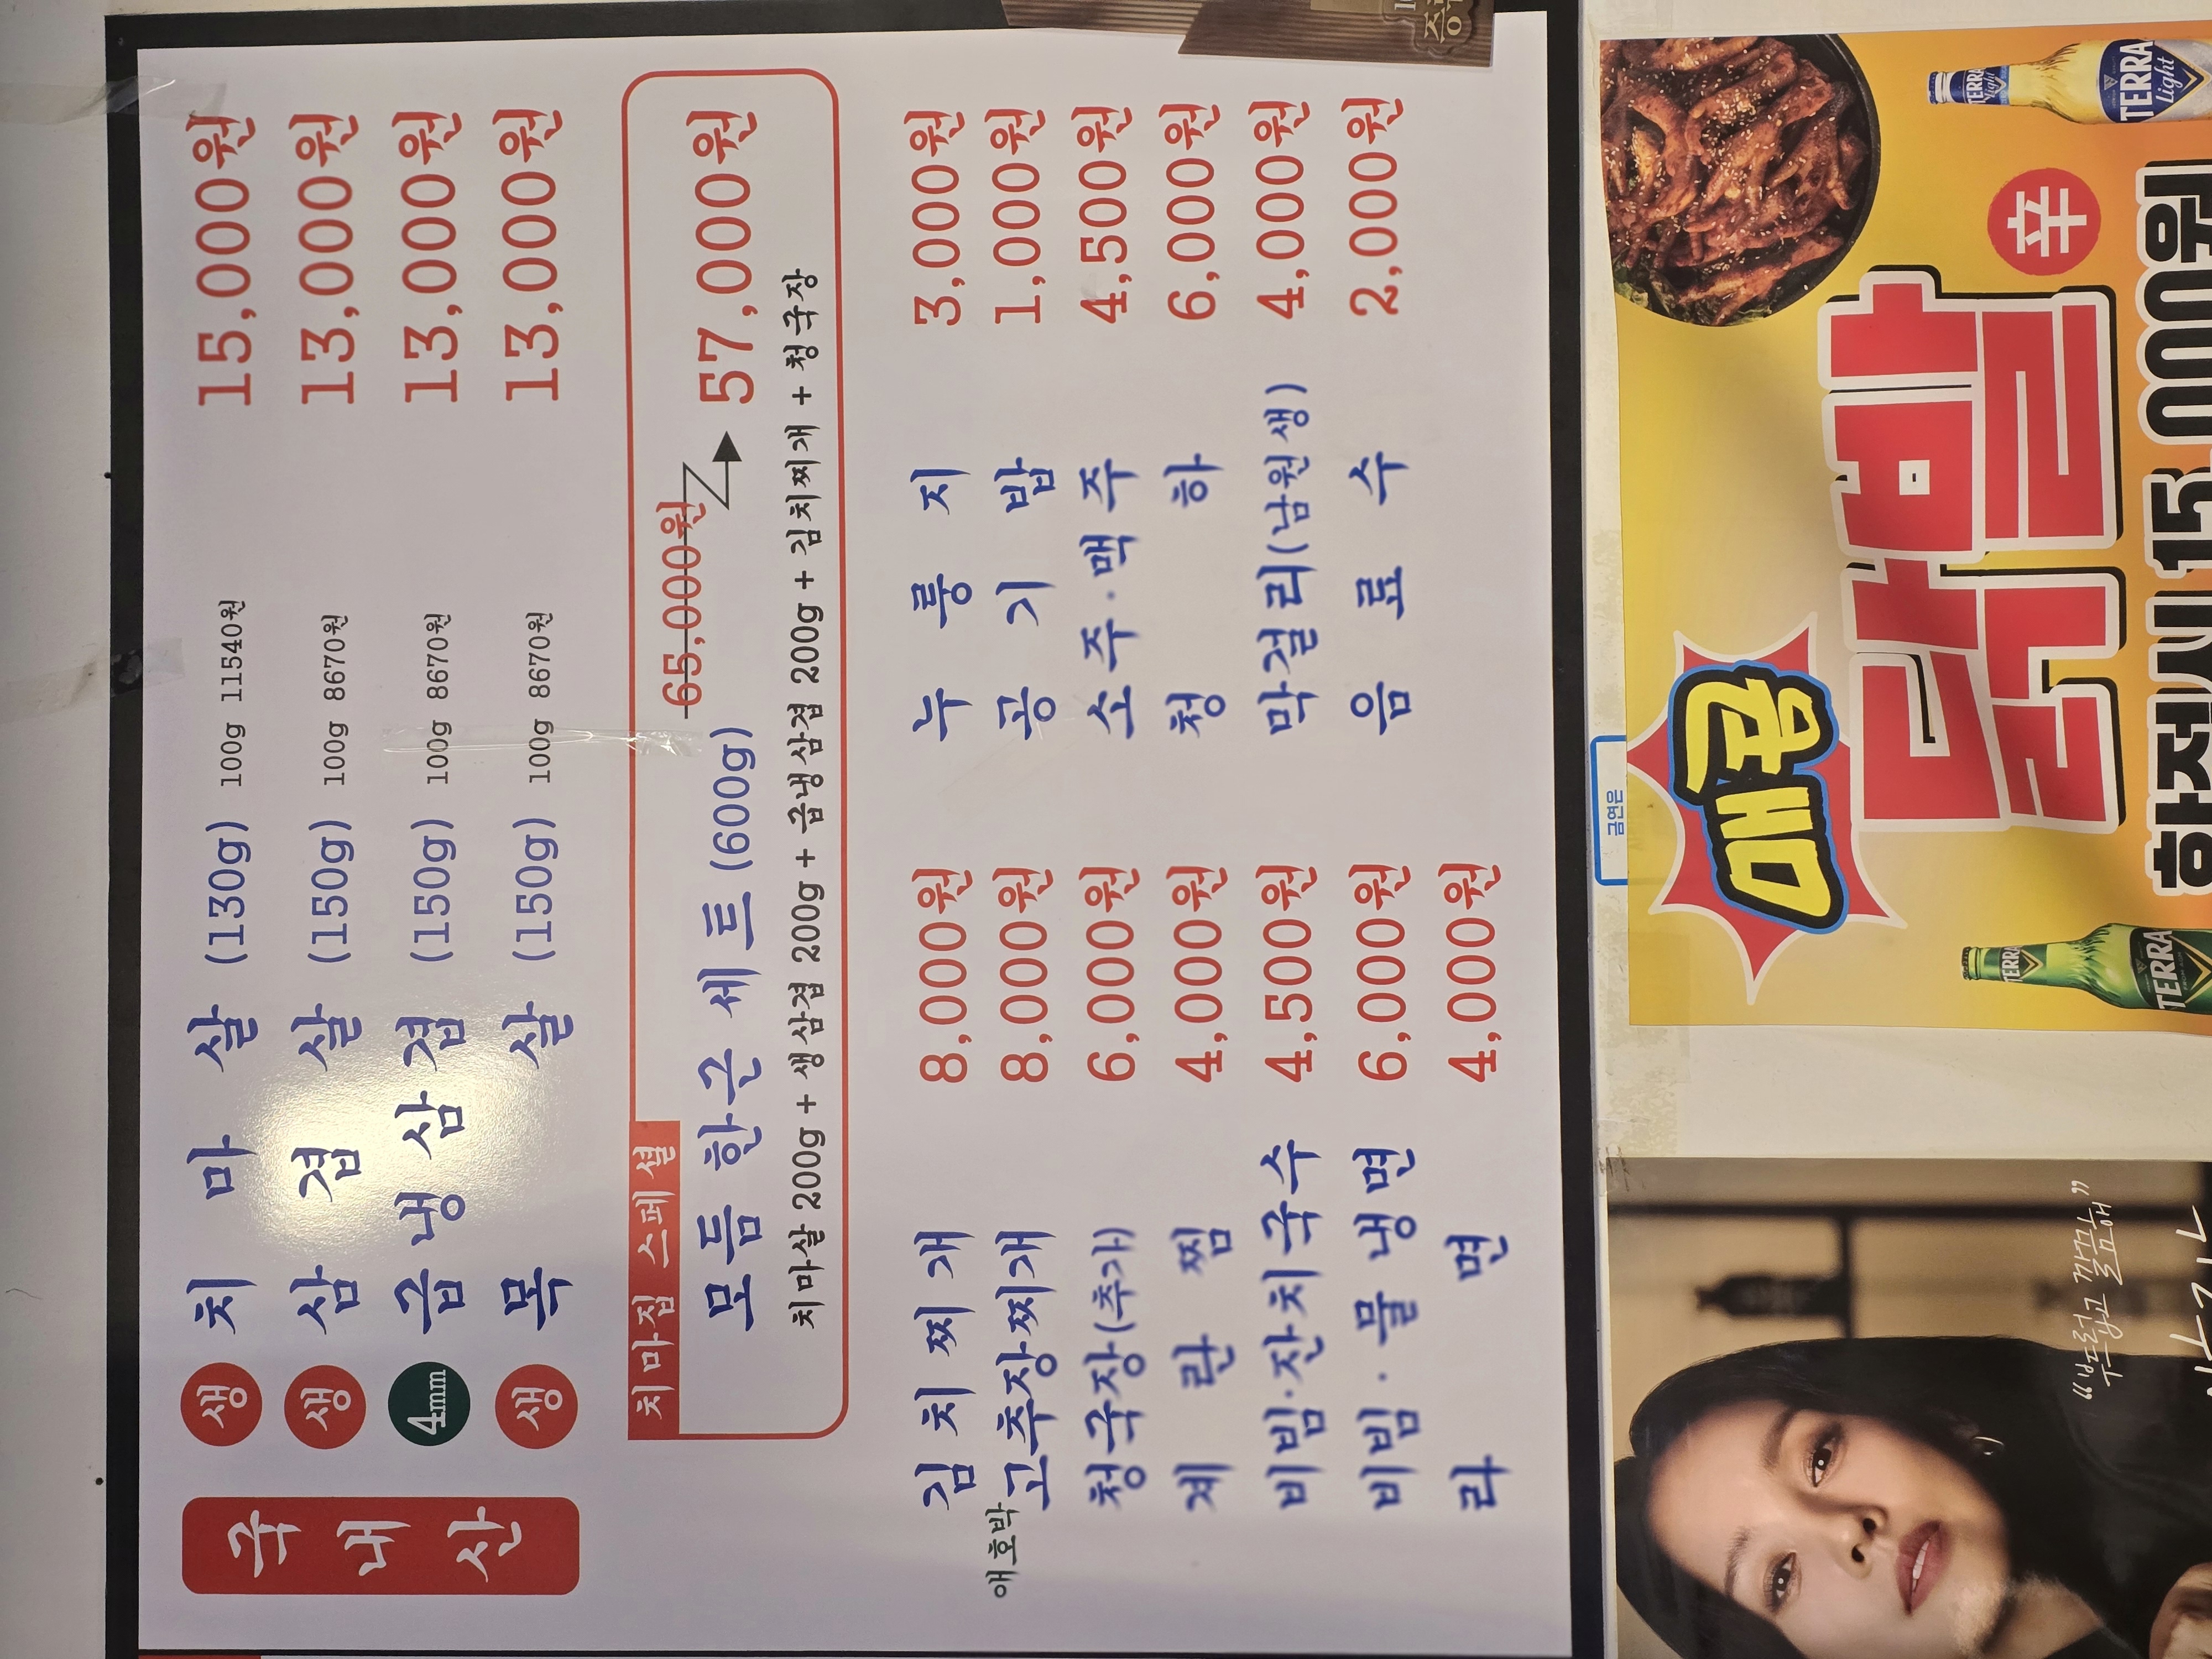 국내산
생 치마살 (130g) 100g 11540원 15,000원
생 삼겹살 (150g) 100g 8670원 13,000원
4mm 급냉삼겹 (150g) 100g 8670원 13,000원
생 목살 (150g) 100g 8670원 13,000원
치마집 스페셜
모듬 한근 세트 (600g) 65,000원 57,000원
치마살 200g + 생삼겹 200g + 급냉삼겹 200g + 김치찌개 + 청국장
김치찌개 8,000원
애호박 고추장찌개 8,000원
청국장(추가) 6,000원
계란찜 4,000원
비빔·잔치국수 4,500원
비빔·물냉면 6,000원
라면 4,000원
누룽지 3,000원
공기밥 1,000원
소주·맥주 4,500원
청하 6,000원
막걸리(남원생) 4,000원
음료수 2,000원
금연은
매콤
닭발
辛
한접시 15,000원
TERRA
TERRA
TERRA
Light
TERRA
Light
"부드러운